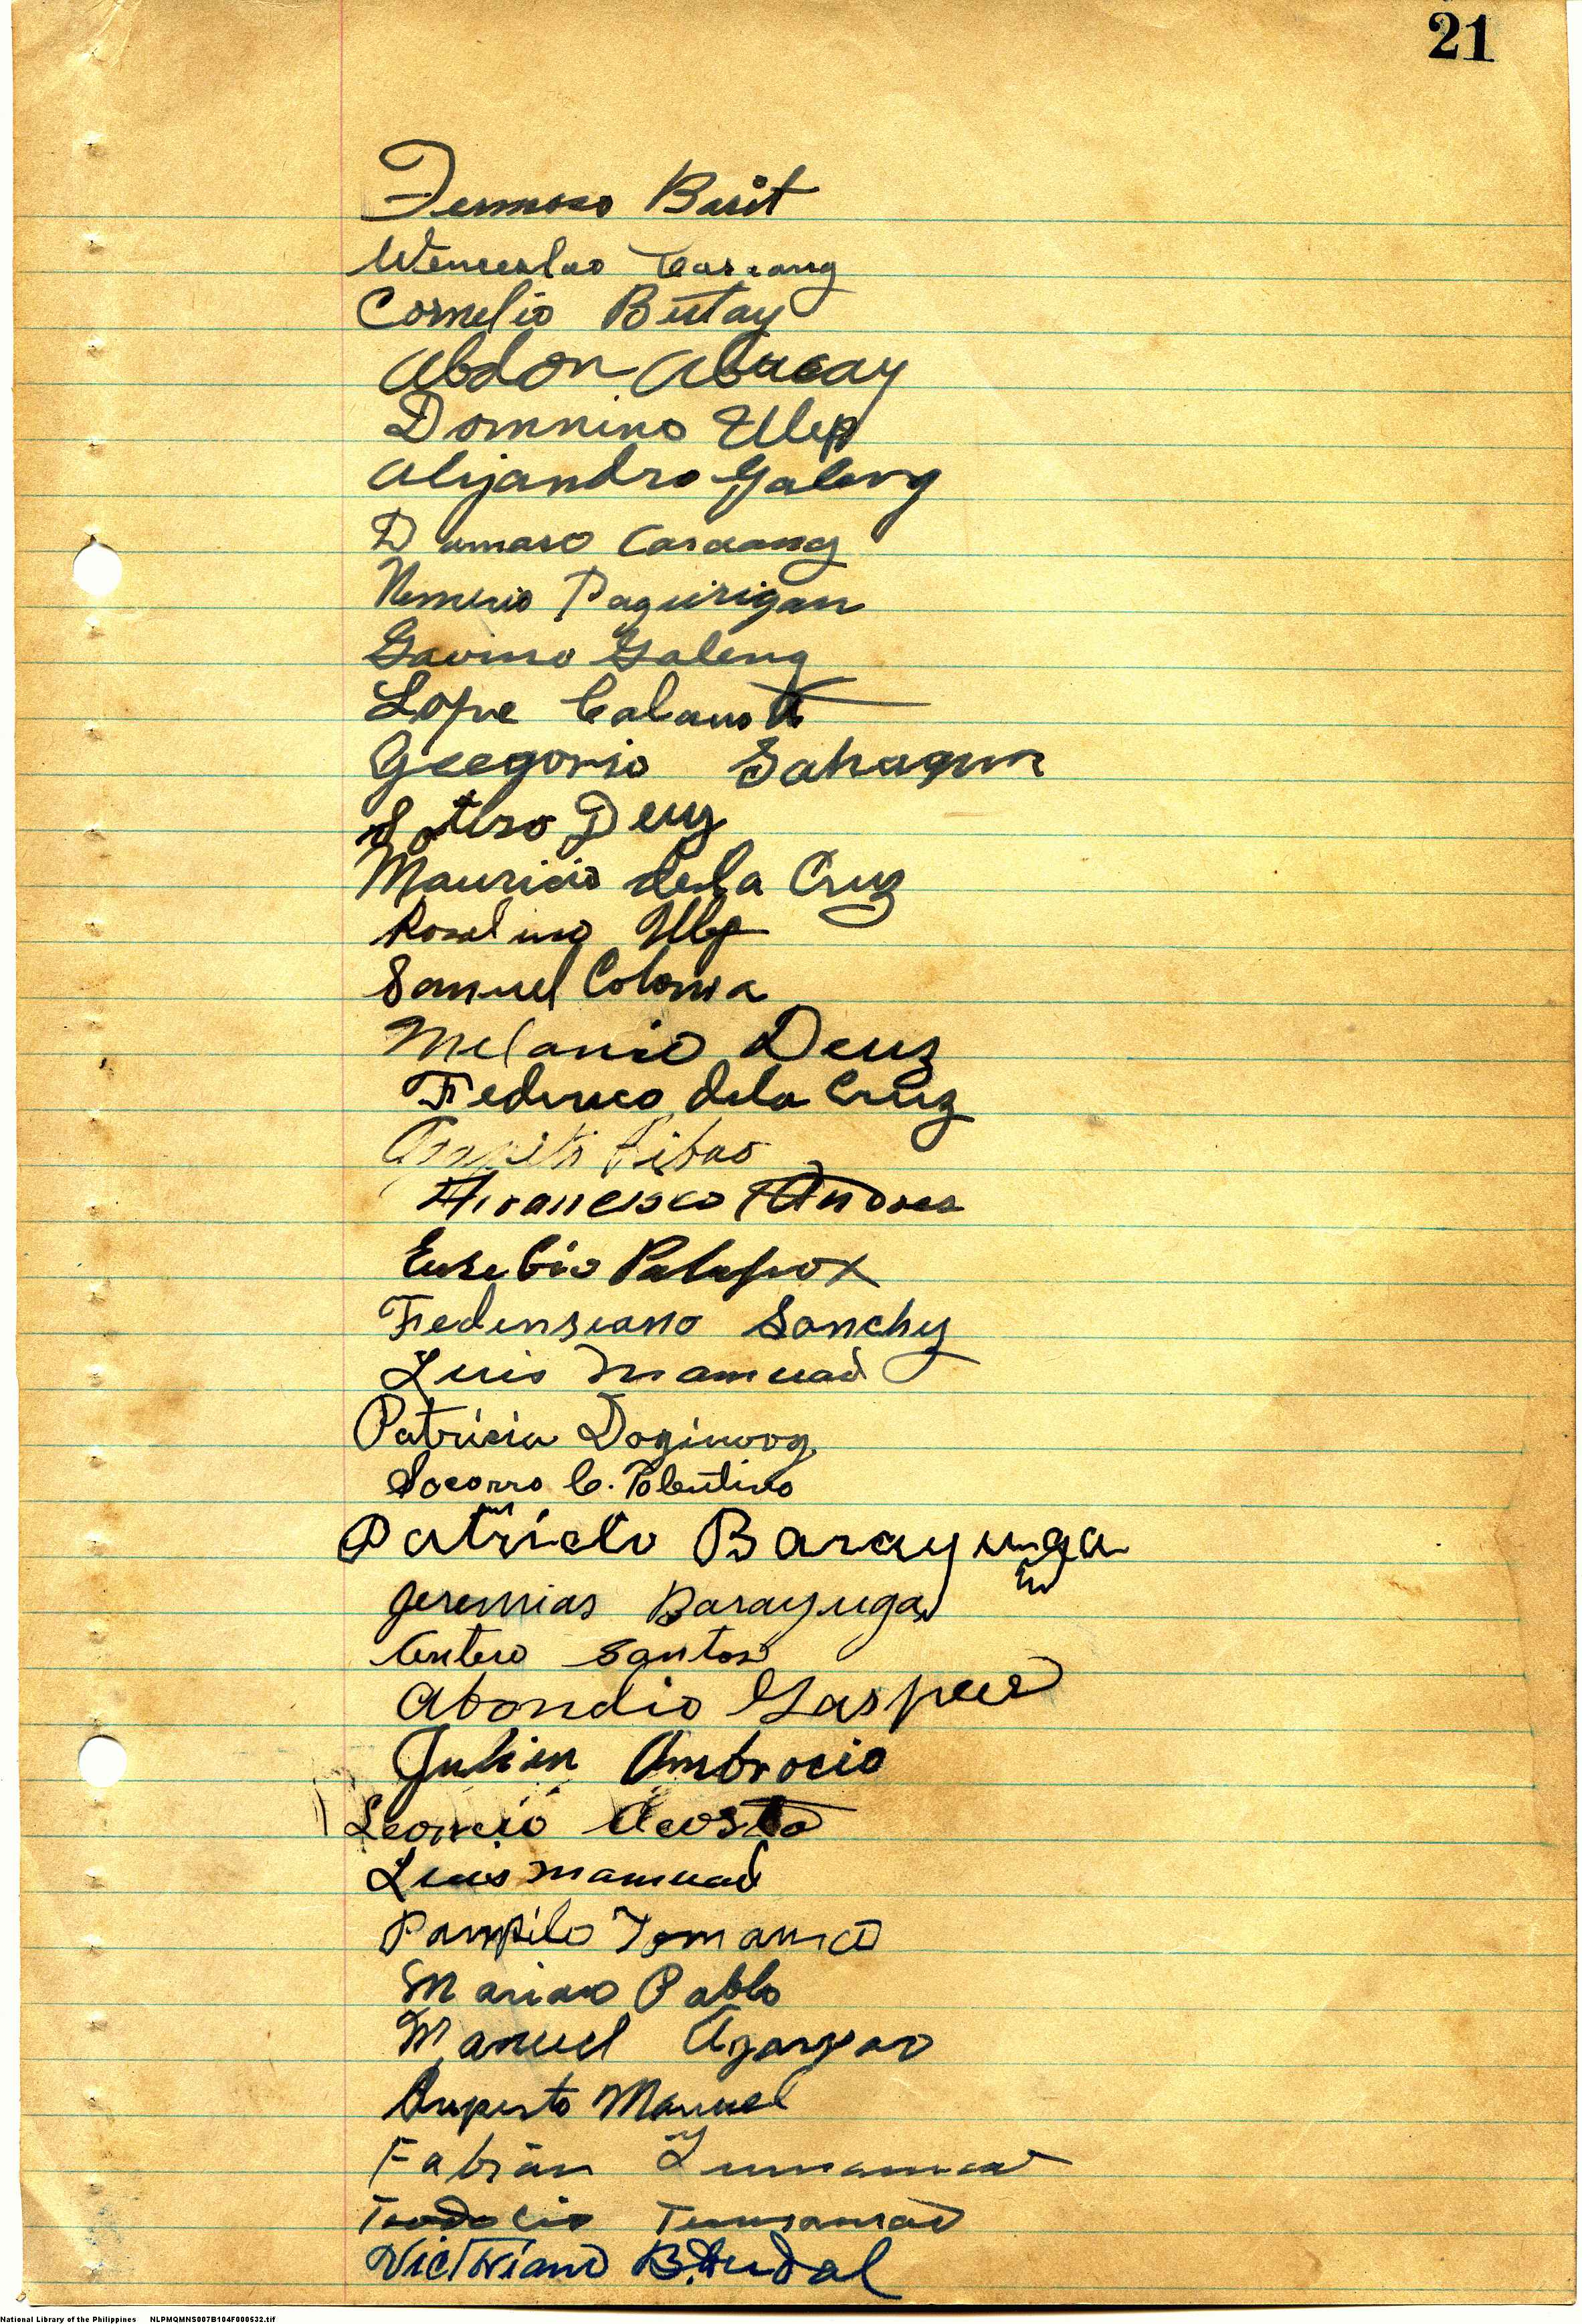 21
Basit
Wenceslao
Cornelio Butay
Abdon Abucay
Domnino Ulep
Alijandro Galeng
Damaso Casaang
Nemerio Paguirigan
Gavino Galeng
Lope
Gregorio Sahagun
Sotero Deuz
Mauricio dela Cruz
Rosalino Ulep
Samuel Coloma
Melanio Deuz
Federico dela Cruz
Agapito
Francisco Andres
Eusebio Palapox
Sanchez
Luis Mamuad
Patricia
Socorro C. Tolentino
Patricio Barayuga
Jeremias Barayuga
Antero Santos
Abondio Gaspar
Julian Ambrocio
Leoncio Acosta
Luis Mamuad
Pampilo
Mariano Pablo
Manuel Agarpao
Ruperto Manuel
Fabian
Victoriano
National Library of the Philippines NLPMQMNS007B104F000532.tif